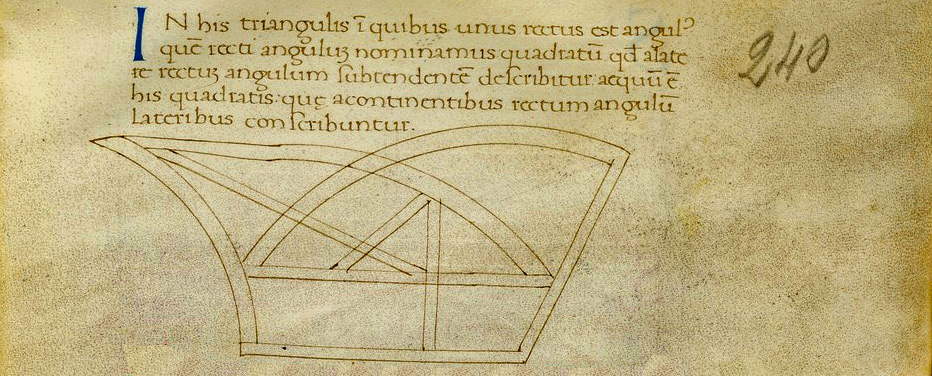 IN his triangulis ī quibus unus rectus est angulꝰ
quē recti anguluʒ nominamus quadratū qđ alate
re rectuʒ angulum subtendentē describitur aequū ē
his quadratis: quę acontinentibus rectum angulū
lateribus conscribuntur.
240